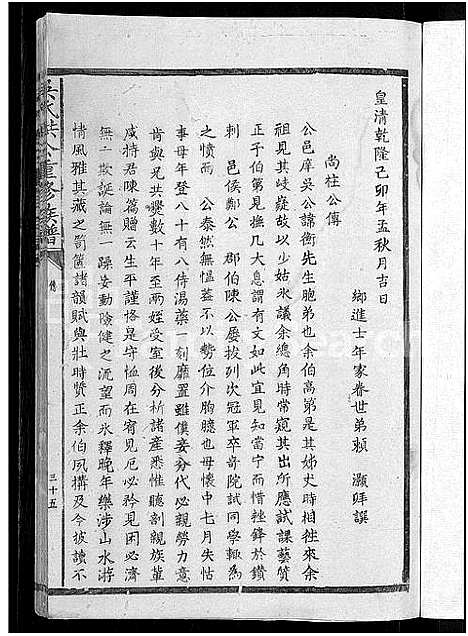 皇清乾隆己卯年孟秋月吉日
鄉進士年家眷世弟賴 灝拜譔
尚柱公傳
公邑庠吳公諱衡先生胞弟也余伯高第是其姊丈時相徃來余
祖見其岐嶷故以少姑氷議余總角時常窺其出所應試課藝質
正于伯第見撫几大息謂有文如此宜見知當宁而惜挫鋒於鑽
刺 邑侯鄭公 郡伯陳公屢拔列次冠軍卒竒院試同學輙為
之憤而 公泰然無慍益不以勢位介胸臆也母懷中七月失怙
事母年登八十有八侍湯藥一刻靡置雖僕妾夯代必親勞力意
肯與兄共㸑數十年至两姪受室後分析諸產悉惟聽剖親族輩
咸持君陳篇贈云生平謹恪是守恤周在宥見厄必矜見困必濟
無二欺誕論無一躁妄動險健之 流望而氷釋晚年樂涉山水游
情風雅其藏之笥篋諸韻賦與壯時贊正余伯夙搆及今披讀不
吳氏 公重修族譜
傳
三十五